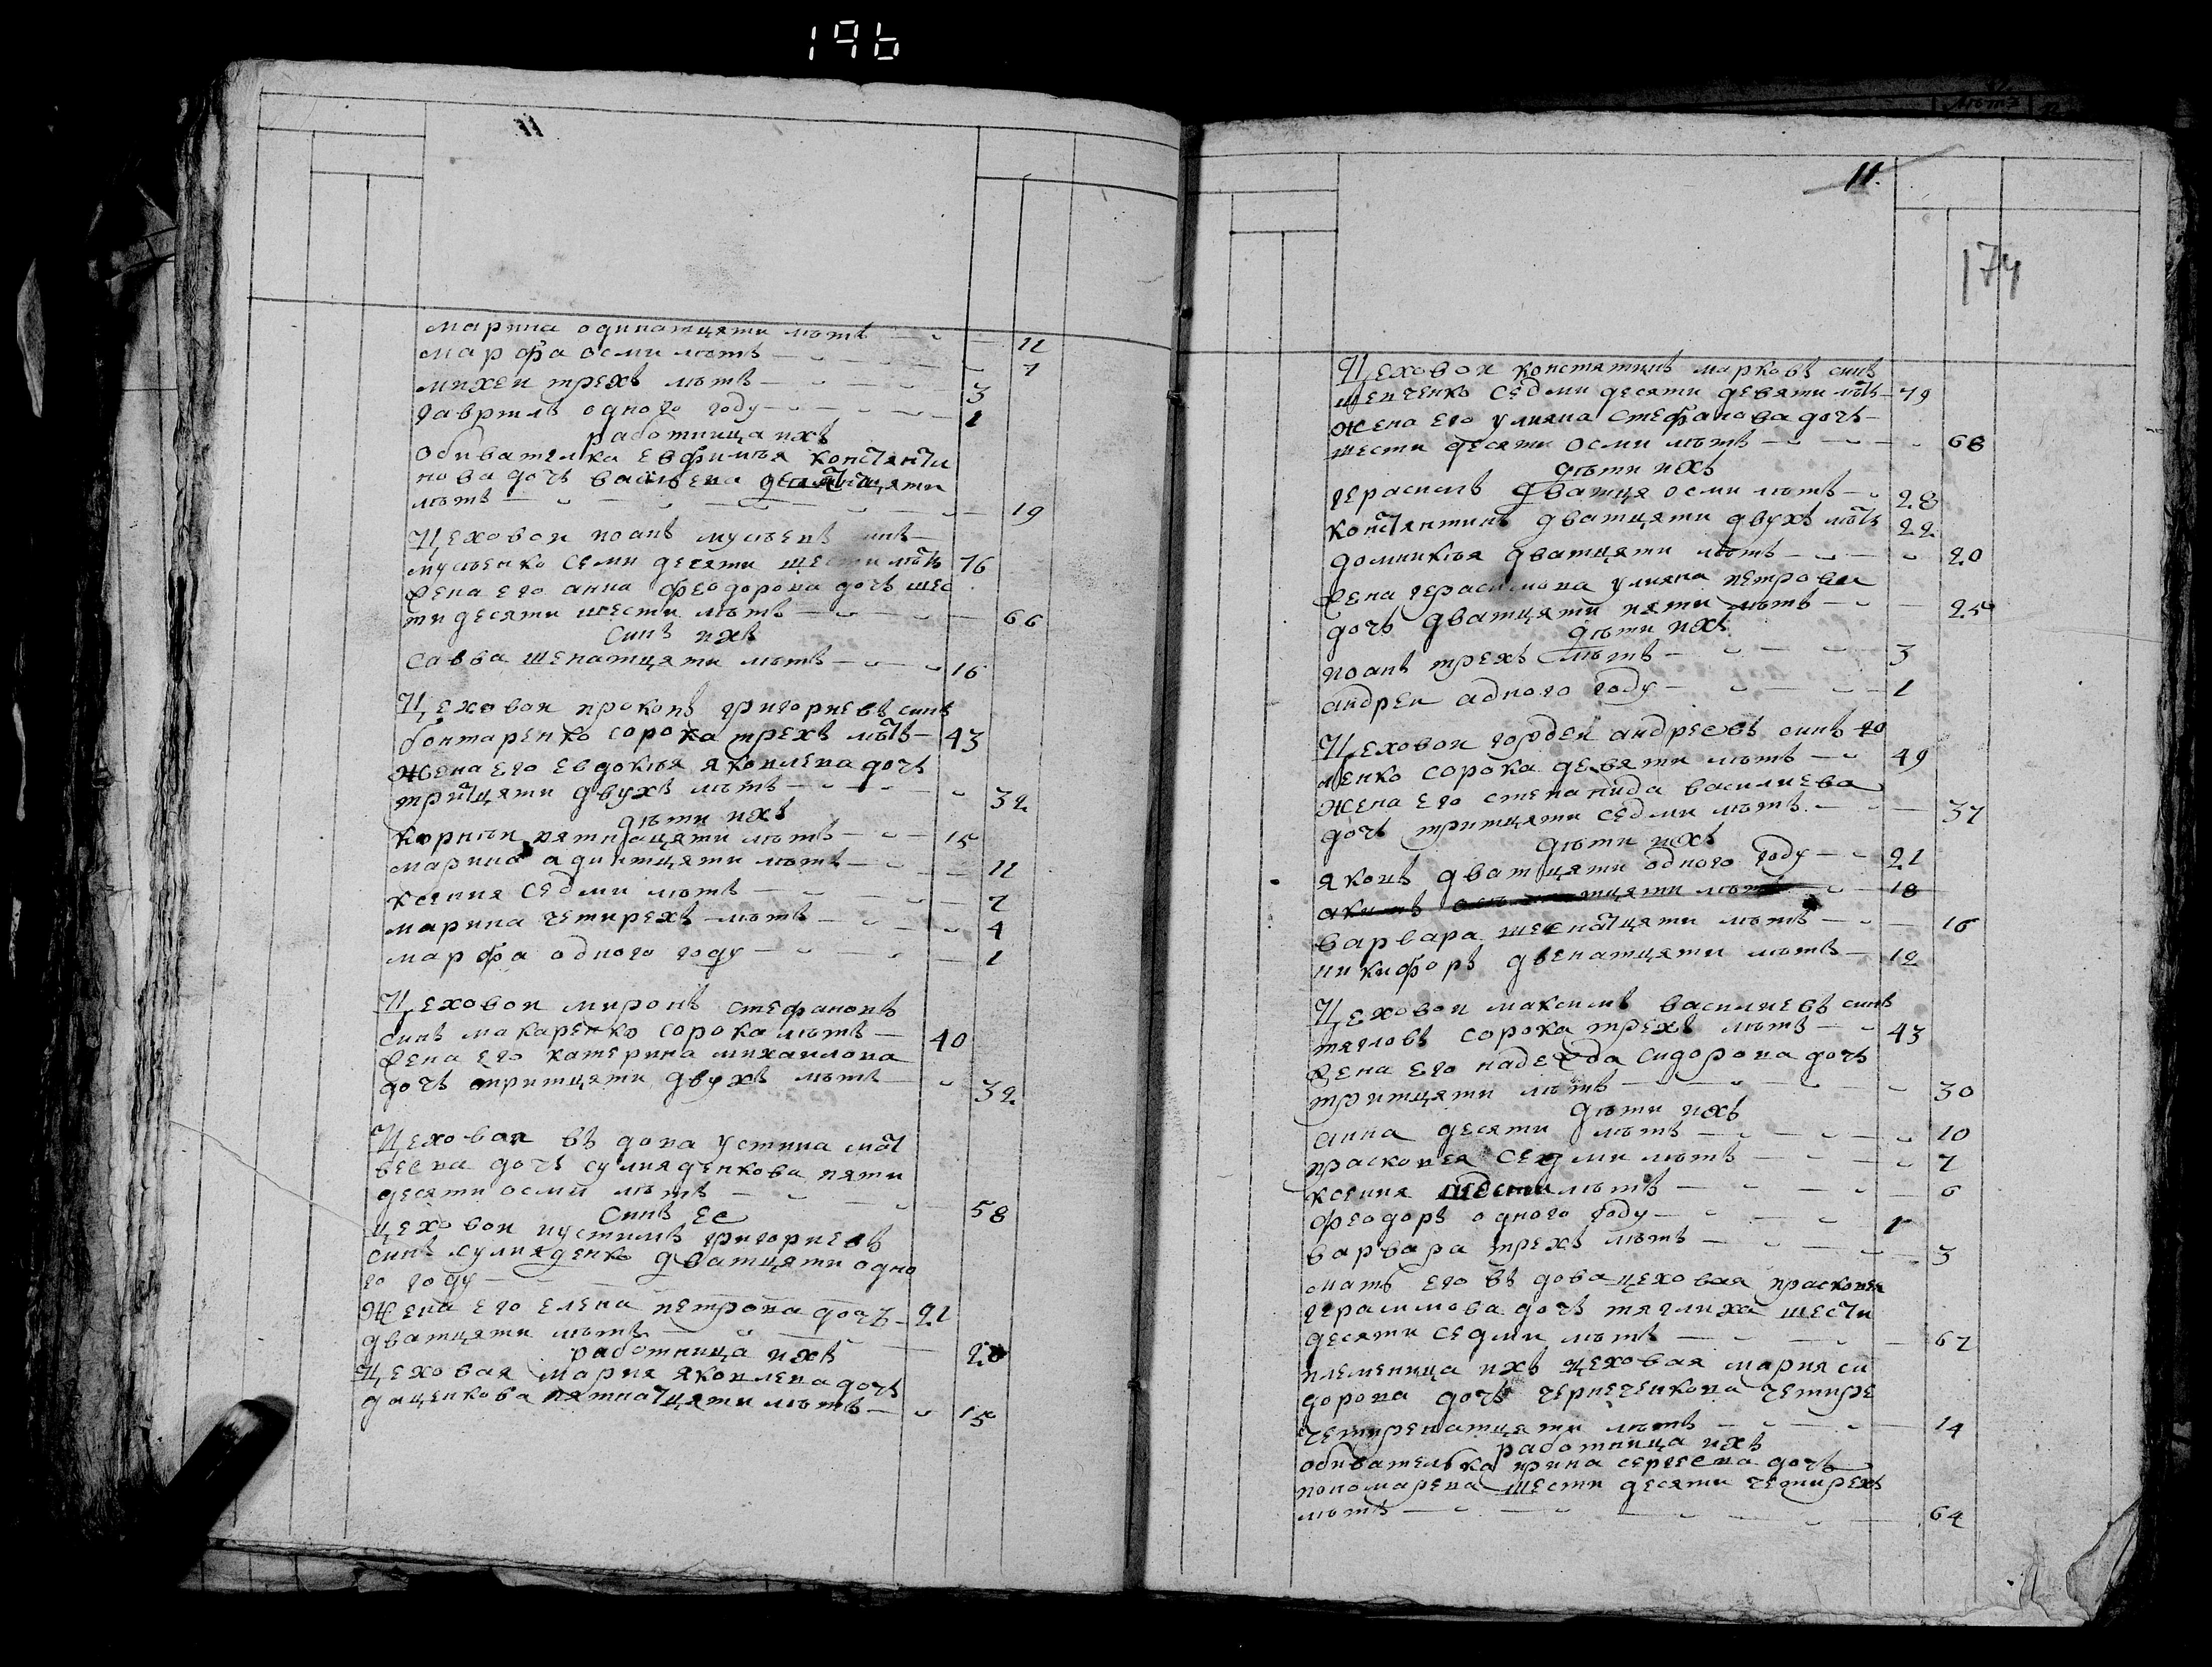 196
11
марина одинатцяти лѣтъ 11
марфа осми лѣтъ 7
михеи трехъ лѣтъ 3
гаврилъ одного году 1
работница ихъ
обивателка евфимѣя констянти
нова дочъ васильева девятнатцяти
лѣтъ 19
Цеховои иоанъ мусѣевъ синъ
мусѣенко семи десяти шести лѣтъ 76
жена его анна феодорова дочъ шес
ти десяти шести лѣтъ 66
синъ ихъ
савва шенатцяти лѣтъ 16
Цеховои прокопъ григориевъ синъ
бонтаренко сорока трехъ лѣтъ 43
жена его евдокѣя яковлева дочъ
тритцяти двухъ лѣтъ 32
дѣти ихъ
корнѣи пятнацяти лѣтъ 15
марина адинтцяти лѣтъ 11
ксения седми лѣтъ 7
марина четирехъ лѣтъ 4
марфа одного году 1
Цеховои миронъ стефановъ
синъ макаренко сорока лѣтъ 40
жена его катерина михаилова
дочъ тритцяти двухъ лѣтъ 32
Цеховая въ дова устина мат
веева дочъ сулияденкова пяти
десяти осми лѣтъ 58
синъ ее
цеховои иустимъ григориевъ
синъ сулияденко дватцяти одно
го году 21
Жена его елена петрова дочъ
дватцяти лѣтъ 20
работница ихъ
Цеховая мария яковлева дочъ
даценкова пятнатцяти лѣтъ 15
11.
174
Цеховои констятинъ марковъ синъ
шевченко седми десяти девяти лѣтъ 79
жена его улияна стефанова дочъ
шести десяти осми лѣтъ 68
дѣти ихъ
герасимъ дватця осми лѣтъ 28
констянтинъ дватцяти двухъ лѣтъ 22
домникѣя дватцяти лѣтъ 20
жена герасимова улияна петрова
дочъ дватцяти пяти лѣтъ 25
дѣти ихъ
иоанъ трехъ лѣтъ 3
андреи адного году 1
Цеховои гордеи андреевъ синъ
ленко сорока девяти лѣтъ 49
жена его степанида василиева
дочъ тритцяти седми лѣтъ 37
дѣти ихъ
яковъ дватцяти одного году 21
акимъ осмнатцяти лѣтъ 18
варвара шеснатцяти лѣтъ 16
никифоръ двенатцяти лѣтъ 12
Цеховои максимъ василиевъ синъ
тягловъ сорока трехъ лѣтъ 43
жена его надежда сидорова дочъ
тритцяти лѣтъ 30
дѣти ихъ
анна десяти лѣтъ 10
праскопея седми лѣтъ 7
ксения шести лѣтъ 6
феодоръ одного году 1
варвара трехъ лѣтъ 3
мать его въ дова цеховая прасковия
герасимова дочъ тяглиха шести
десяти седми лѣтъ 67
племеница ихъ цеховая мария си
дорова дочъ черпеченкова четире
четиренатцяти лѣтъ 14
работница ихъ
обивателька ирина сергеева дочъ
пономарева шести десяти четирехъ
лѣтъ 64